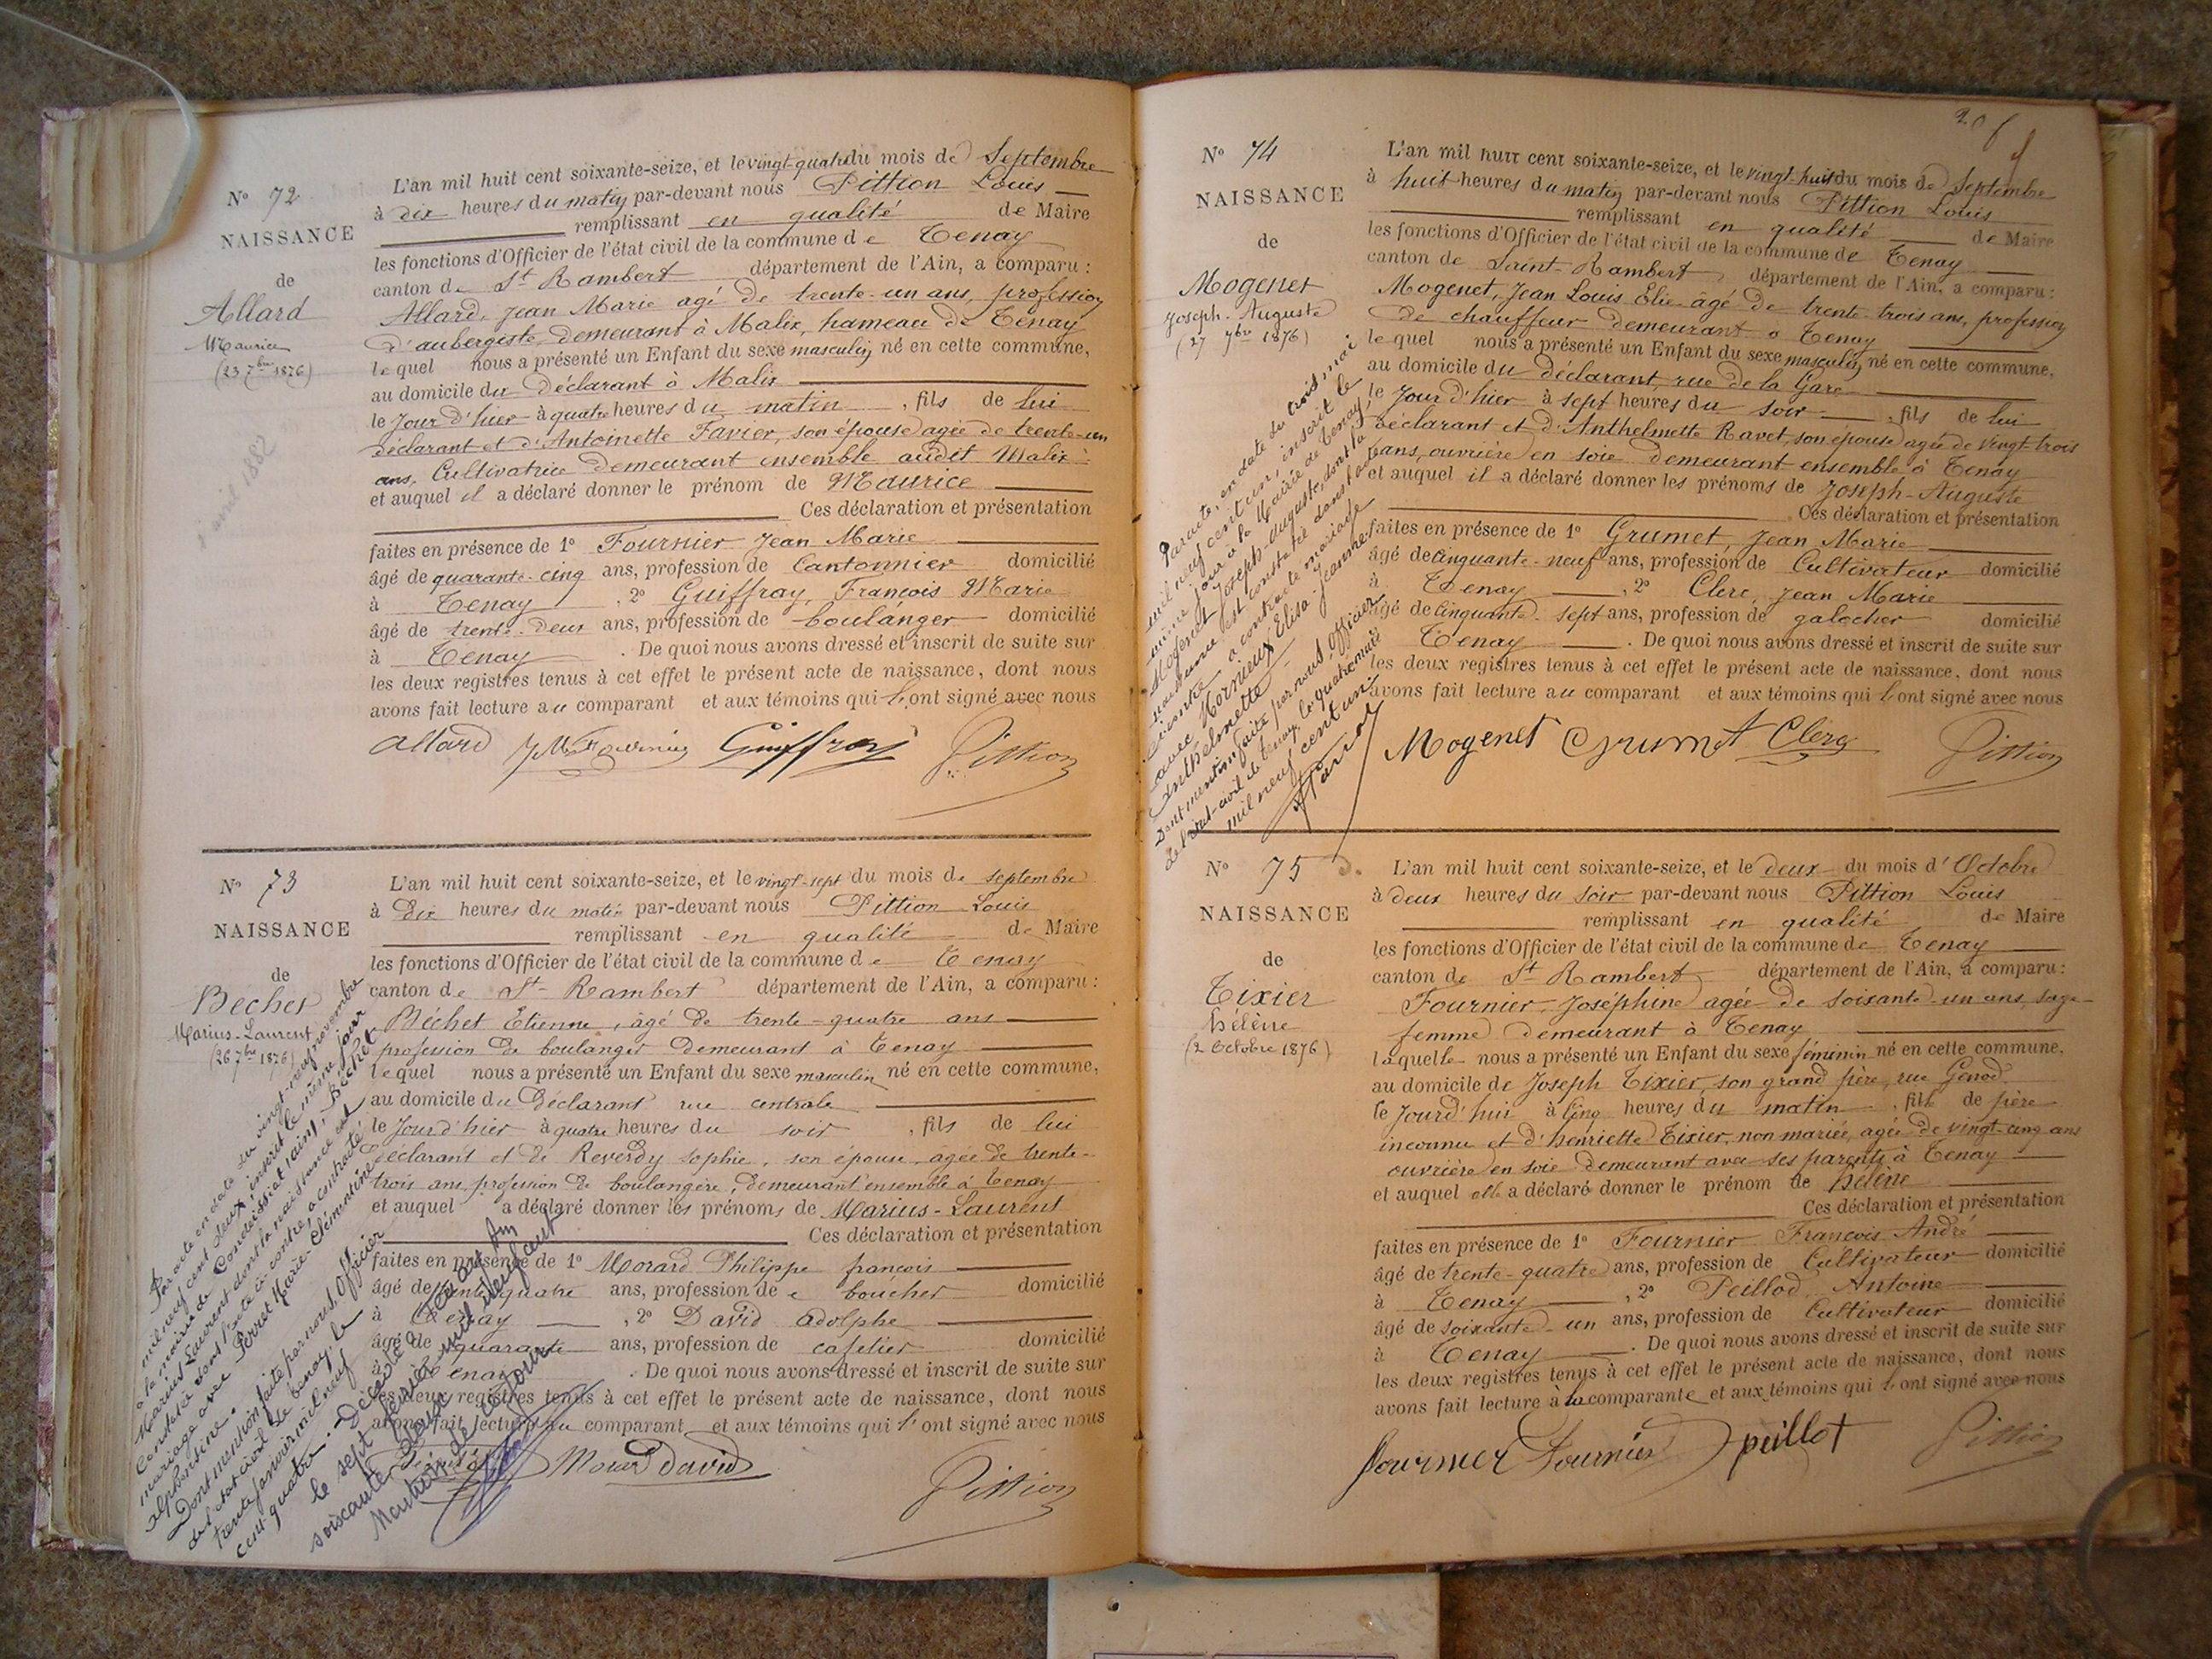 N° 72
NAISSANCE
de
Allard
Maurice
(23 7bre 1876)
L'an mil huit cent soixante-seize, et le vingt-quatre du mois de Septembre
à dix heures du matin par-devant nous Pittion Louis
remplissant en qualité de Maire
les fonctions d'Officier de l'état civil de la commune de Tenay
canton de St Rambert département de l'Ain, a comparu :
Allard, Jean Marie agé de trente-un ans, profession
d'aubergiste, demeurant à Malix, hameau de Tenay
lequel nous a présenté un Enfant du sexe masculin né en cette commune,
au domicile du Déclarant à Malix
le Jour d'hier à quatre heures du matin, fils de lui
déclarant et d'Antoinette Favier, son épouse agée de trente-un
ans, Cultivatrice demeurant ensemble audit Malix
et auquel il a déclaré donner le prénom de Maurice
Ces déclaration et présentation
faites en présence de 1° Fournier Jean Marie
âgé de quarante-cinq ans, profession de Cantonnier domicilié
à Tenay, 2° Guiffray, François Marie
âgé de trente-deux ans, profession de boulanger domicilié
à Tenay. De quoi nous avons dressé et inscrit de suite sur
les deux registres tenus à cet effet le présent acte de naissance, dont nous
avons fait lecture au comparant et aux témoins qui l'ont signé avec nous
Allard JM Fournier Guiffray Pittion
N° 73
NAISSANCE
de
Béchet
Marius-Laurent
(26 7bre 1876)
L'an mil huit cent soixante-seize, et le vingt-sept du mois de septembre
à Dix heures du matin par-devant nous Pittion Louis
remplissant en qualité de Maire
les fonctions d'Officier de l'état civil de la commune de Tenay
canton de St-Rambert département de l'Ain, a comparu :
Béchet Etienne, âgé de trente-quatre ans
profession de boulanger demeurant à Tenay
lequel nous a présenté un Enfant du sexe masculin né en cette commune,
au domicile du Déclarant rue centrale
le Jour d'hier à quatre heures du soir, fils de lui
déclarant et de Reverdy Sophie, son épouse, agée de trente-
trois ans, profession de boulangère, demeurant ensemble à Tenay
et auquel a déclaré donner les prénoms de Marius-Laurent
Ces déclaration et présentation
faites en présence de 1° Morard Philippe françois
âgé de trente quatre ans, profession de boucher domicilié
à Tenay, 2° David Adolphe
âgé de quarante ans, profession de cafetier domicilié
à Tenay. De quoi nous avons dressé et inscrit de suite sur
les deux registres tenus à cet effet le présent acte de naissance, dont nous
avons fait lecture au comparant et aux témoins qui l'ont signé avec nous
Morard David Pittion
Par acte en date du vingt-neuf novembre
mil neuf cent deux, inscrit le même jour
à la mairie de Condeissiat (ain), Béchet
Marius Laurent dont la naissance est
constatée dont l'acte ci-contre, a contracté
mariage avec Perret Marie-Clémentine
alphonsine.
Dont mention faite par nous, Officier
de l'état civil de Tenay, le
trente Janvier mil neuf
cent quatre.
Décédé à Tenay Ain
le sept février mil neuf cent
soixante deux
Mention de ce jour
N° 74
NAISSANCE
de
Mogenet
Joseph-Auguste
(27 7bre 1876)
L'an mil huit cent soixante-seize, et le vingt-huit du mois de Septembre
à huit heures du matin par-devant nous Pittion Louis
remplissant en qualité de Maire
les fonctions d'Officier de l'état civil de la commune de Tenay
canton de Saint-Rambert département de l'Ain, a comparu :
Mogenet, Jean Louis Elie âgé de trente-trois ans, profession
de chauffeur demeurant à Tenay
lequel nous a présenté un Enfant du sexe masculin né en cette commune,
au domicile du Déclarant, rue de la Gare
le Jour d'hier à sept heures du soir, fils de lui
déclarant et d'Anthelmette Ravet, son épouse agée de vingt-trois
ans, ouvrière en soie demeurant ensemble à Tenay
et auquel il a déclaré donner les prénoms de Joseph-Auguste
Ces déclaration et présentation
faites en présence de 1° Grumet, Jean Marie
âgé de Cinquante-neuf ans, profession de Cultivateur domicilié
à Tenay, 2° Clerc, Jean Marie
âgé de Cinquante-sept ans, profession de galocher domicilié
Tenay. De quoi nous avons dressé et inscrit de suite sur
les deux registres tenus à cet effet le présent acte de naissance, dont nous
avons fait lecture au comparant et aux témoins qui l'ont signé avec nous
Mogenet Grumet Clerc Pittion
Par acte, en date du trois mai
mil neuf cent un, inscrit le
même jour à la Mairie de Tenay,
Mogenet Joseph-Auguste, dont la
naissance est constatée dans l'acte
ci-contre, a contracté mariage
avec Mornieux Elisa-Jeanne
Anthelmette
Dont mention faite par nous Officier
de l'état-civil de Tenay, le quatre mai
mil neuf cent un.
N° 75
NAISSANCE
de
Tixier
hélène
(2 Octobre 1876)
L'an mil huit cent soixante-seize, et le deux du mois d'Octobre
à deux heures du soir par-devant nous Pittion Louis
remplissant en qualité de Maire
les fonctions d'Officier de l'état civil de la commune de Tenay
canton de St Rambert département de l'Ain, a comparu :
Fournier, Joséphine agée de soixante-un ans, sage-
femme demeurant à Tenay
laquelle nous a présenté un Enfant du sexe féminin né en cette commune,
au domicile de Joseph Tixier, son grand père, rue Genod
le Jourd'hui à Cinq heures du matin, fille de père
inconnu et d'henriette Tixier, non mariée, agée de vingt-cinq ans
ouvrière en soie demeurant avec ses parents à Tenay
et auquel elle a déclaré donner le prénom de hélène
Ces déclaration et présentation
faites en présence de 1° Fournier François André
âgé de trente-quatre ans, profession de Cultivateur domicilié
à Tenay, 2° Peillod Antoine
âgé de soixante-un ans, profession de Cultivateur domicilié
à Tenay. De quoi nous avons dressé et inscrit de suite sur
les deux registres tenus à cet effet le présent acte de naissance, dont nous
avons fait lecture à la comparante et aux témoins qui l'ont signé avec nous
fournier Fournier peillot Pittion